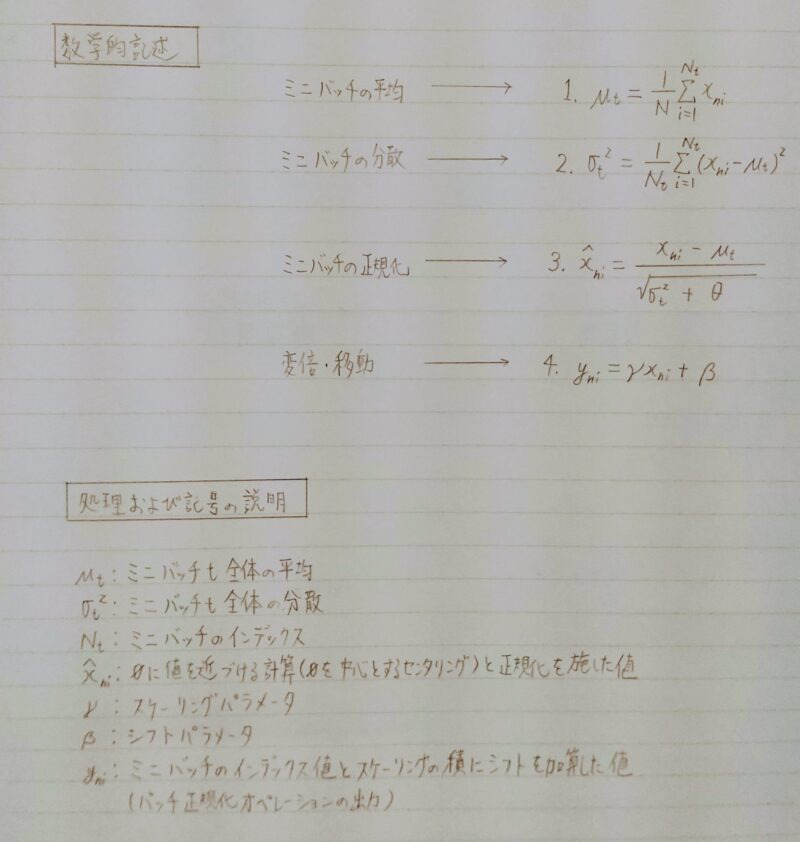 数学的記述
ミニバッチの平均 → 1. μ_t = 1/N Σ_{i=1}^{N_t} x_{ni}
ミニバッチの分散 → 2. σ_t² = 1/N_t Σ_{i=1}^{N_t} (x_{ni} - μ_t)²
ミニバッチの正規化 → 3. x̂_{ni} = (x_{ni} - μ_t) / √(σ_t² + θ)
変倍・移動 → 4. y_{ni} = γx_{ni} + β
処理および記号の説明
μ_t : ミニバッチt 全体の平均
σ_t² : ミニバッチt 全体の分散
N_t : ミニバッチのインデックス
x̂_{ni} : 0に値を近づける計算(0を中心とするセンタリング)と正規化を施した値
γ : スケーリングパラメータ
β : シフトパラメータ
y_{ni} : ミニバッチのインデックス値とスケーリングの積にシフトを加算した値
(バッチ正規化オペレーションの出力)